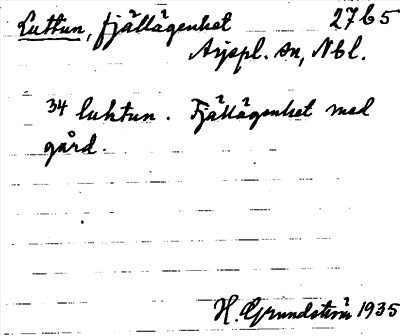 Luttun, fjällägenhet 2765
Arjepl. sn, Nbl.
34 luhtun. Fjällägenhet med
gård.
H. Grundström 1935